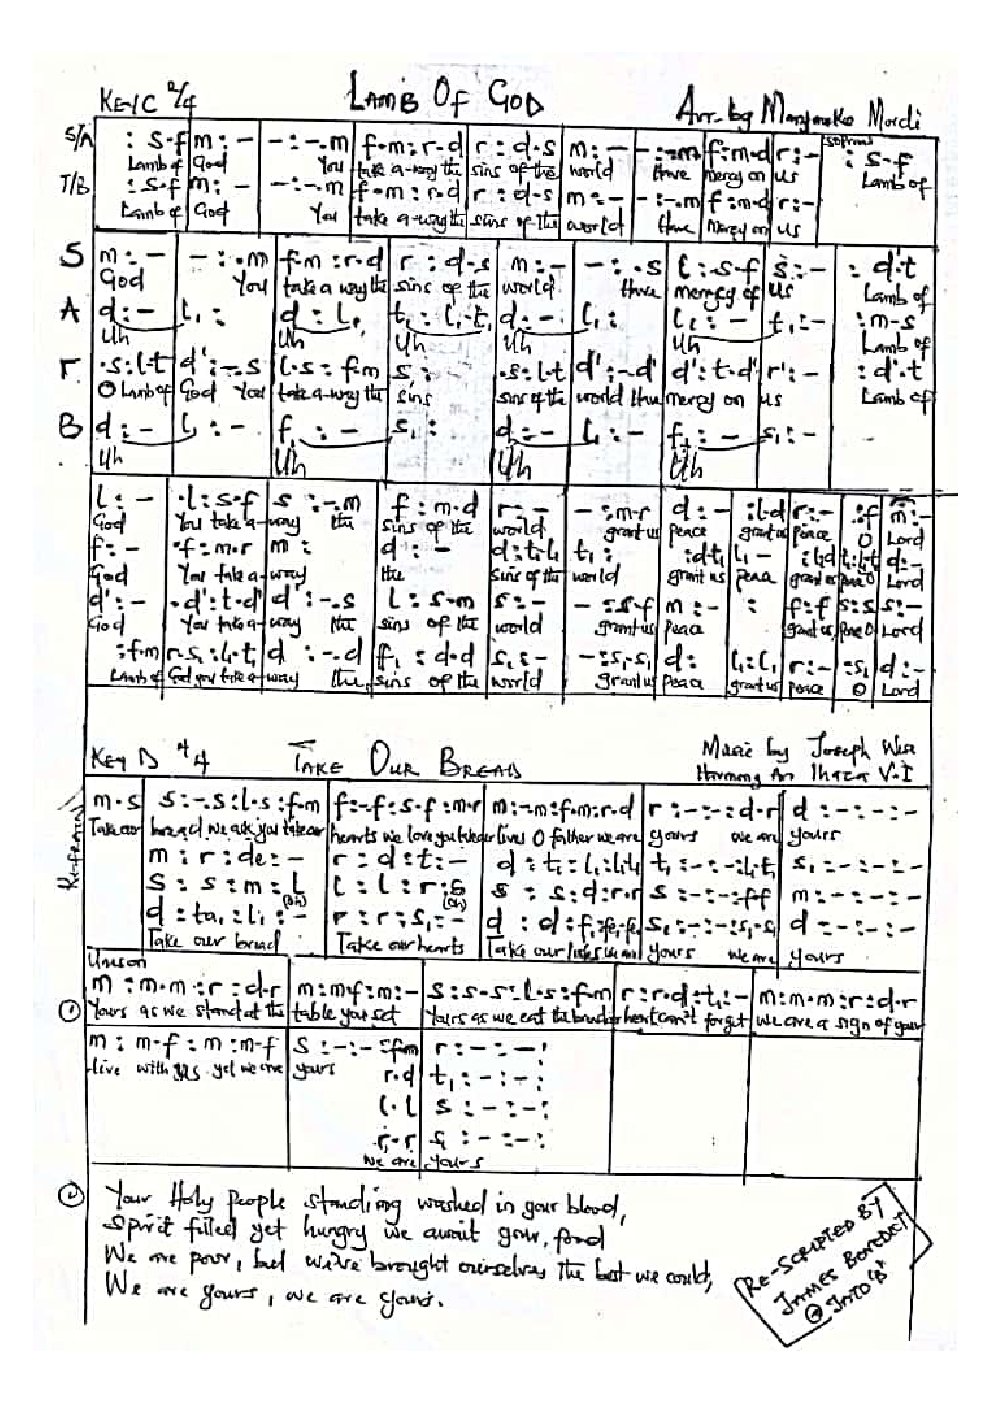 KEY C 2/4 LAMB OF GOD Arr. by Mordi
S/A : s.f m : - - : -.m f.m : r.d r : d.s m : - - : -.m f : m.d r : - : s.f
Lamb of God You take a-way the sins of the world Have mercy on us Lamb of
T/B : s.f m : - - : -.m f.m : r.d r : d.s m : - - : -.m f : m.d r : -
Lamb of God You take a-way the sins of the world Have mercy on us
S m : - - : .m f.m : r.d r : d.s m : - - : .s l : s.f s : - : d'.t
God You take a way the sins of the world have mercy of us Lamb of
A d : - l₁ : d : l₁ t₁ : l₁.t₁ d : - l₁ : l₁ : - t₁ : - : m.s
Uh Uh Uh Uh Uh Lamb of
T. .s : l.t d' : -.s l.s : f.m s : .s : l.t d' : -.d' d' : t.d' r' : - : d'.t
O Lamb of God You take a-way the sins sins of the world thu mercy on us Lamb of
B d : - l₁ : - f₁ : - s₁ : d : - l₁ : - f₁ : - s₁ : -
Uh Uh Uh Uh
l : - .l : s.f s : -.m f : m.d r : - - : m.r d : - : l.d r : - : f m : -
God You take a-way the sins of the world grant us peace grant us peace O Lord
f : - .f : m.r m : d : - d : t.l t₁ : : d.t₁ l₁ - d : -
God You take a-way the sins of the world grant us peace grant us O Lord
d' : - .d' : t.d' d' : -.s l : s.m s : - - : s.f m : - : f : f s : s s : -
God You take a-way the sins of the world grant us peace grant us O Lord
: f.m r.s₁ : l₁.t₁ d : -.d f₁ : d.d s₁ : - - : s₁.s₁ d : l₁ : l₁ r : - : s₁ d : -
Lamb of God you take a-way the sins of the world grant us peace grant us peace O Lord
KEY D 4/4 TAKE OUR BREAD Music by Joseph Wise
V.I
Refrain
m.s s : -.s : l.s : f.m f : -.f : s.f : m.r m : -.m : f.m : r.d r : - : - : d.r d : - : - : -
Take our bread we ask you take our hearts we love you take our lives O father we are yours we are yours
m : r : de : - r : d : t : - d : t₁ : l₁ : l₁.l₁ t₁ : - : - : l₁.t₁ s₁ : - : - : -
s : s : m : l l : l : r : s s : s : d : r.r s : - : - : f.f m : - : - : -
(oh) (oh)
d : ta₁ : l₁ : - r : r : s₁ : - d : d : f₁ : fe₁.fe₁ s₁ : - : - : s₁.s₁ d : - : - : -
Take our bread Take our hearts Take our lives we are yours we are yours
Unison
① m : m.m : r : d.r m : m.f : m : - s : s.s : l.s : f.m r : r.d : t₁ : - m : m.m : r : d.r
Yours as we stand at the table you set Yours as we eat the bread our heart can't forget We are a sign of your
m : m.f : m : m.f s : - : - : f.m r : - : - :
live with us yet we are yours
r.d t₁ : - : - :
l.l s : - : - :
r.r s₁ : - : - :
we are yours
② Your Holy People standing washed in your blood,
Spirit filled yet hungry we await your food
We are poor, but we've brought ourselves the best we could,
We are yours, we are yours.
RE-SCRIPTED BY
JAMES BENEDICT